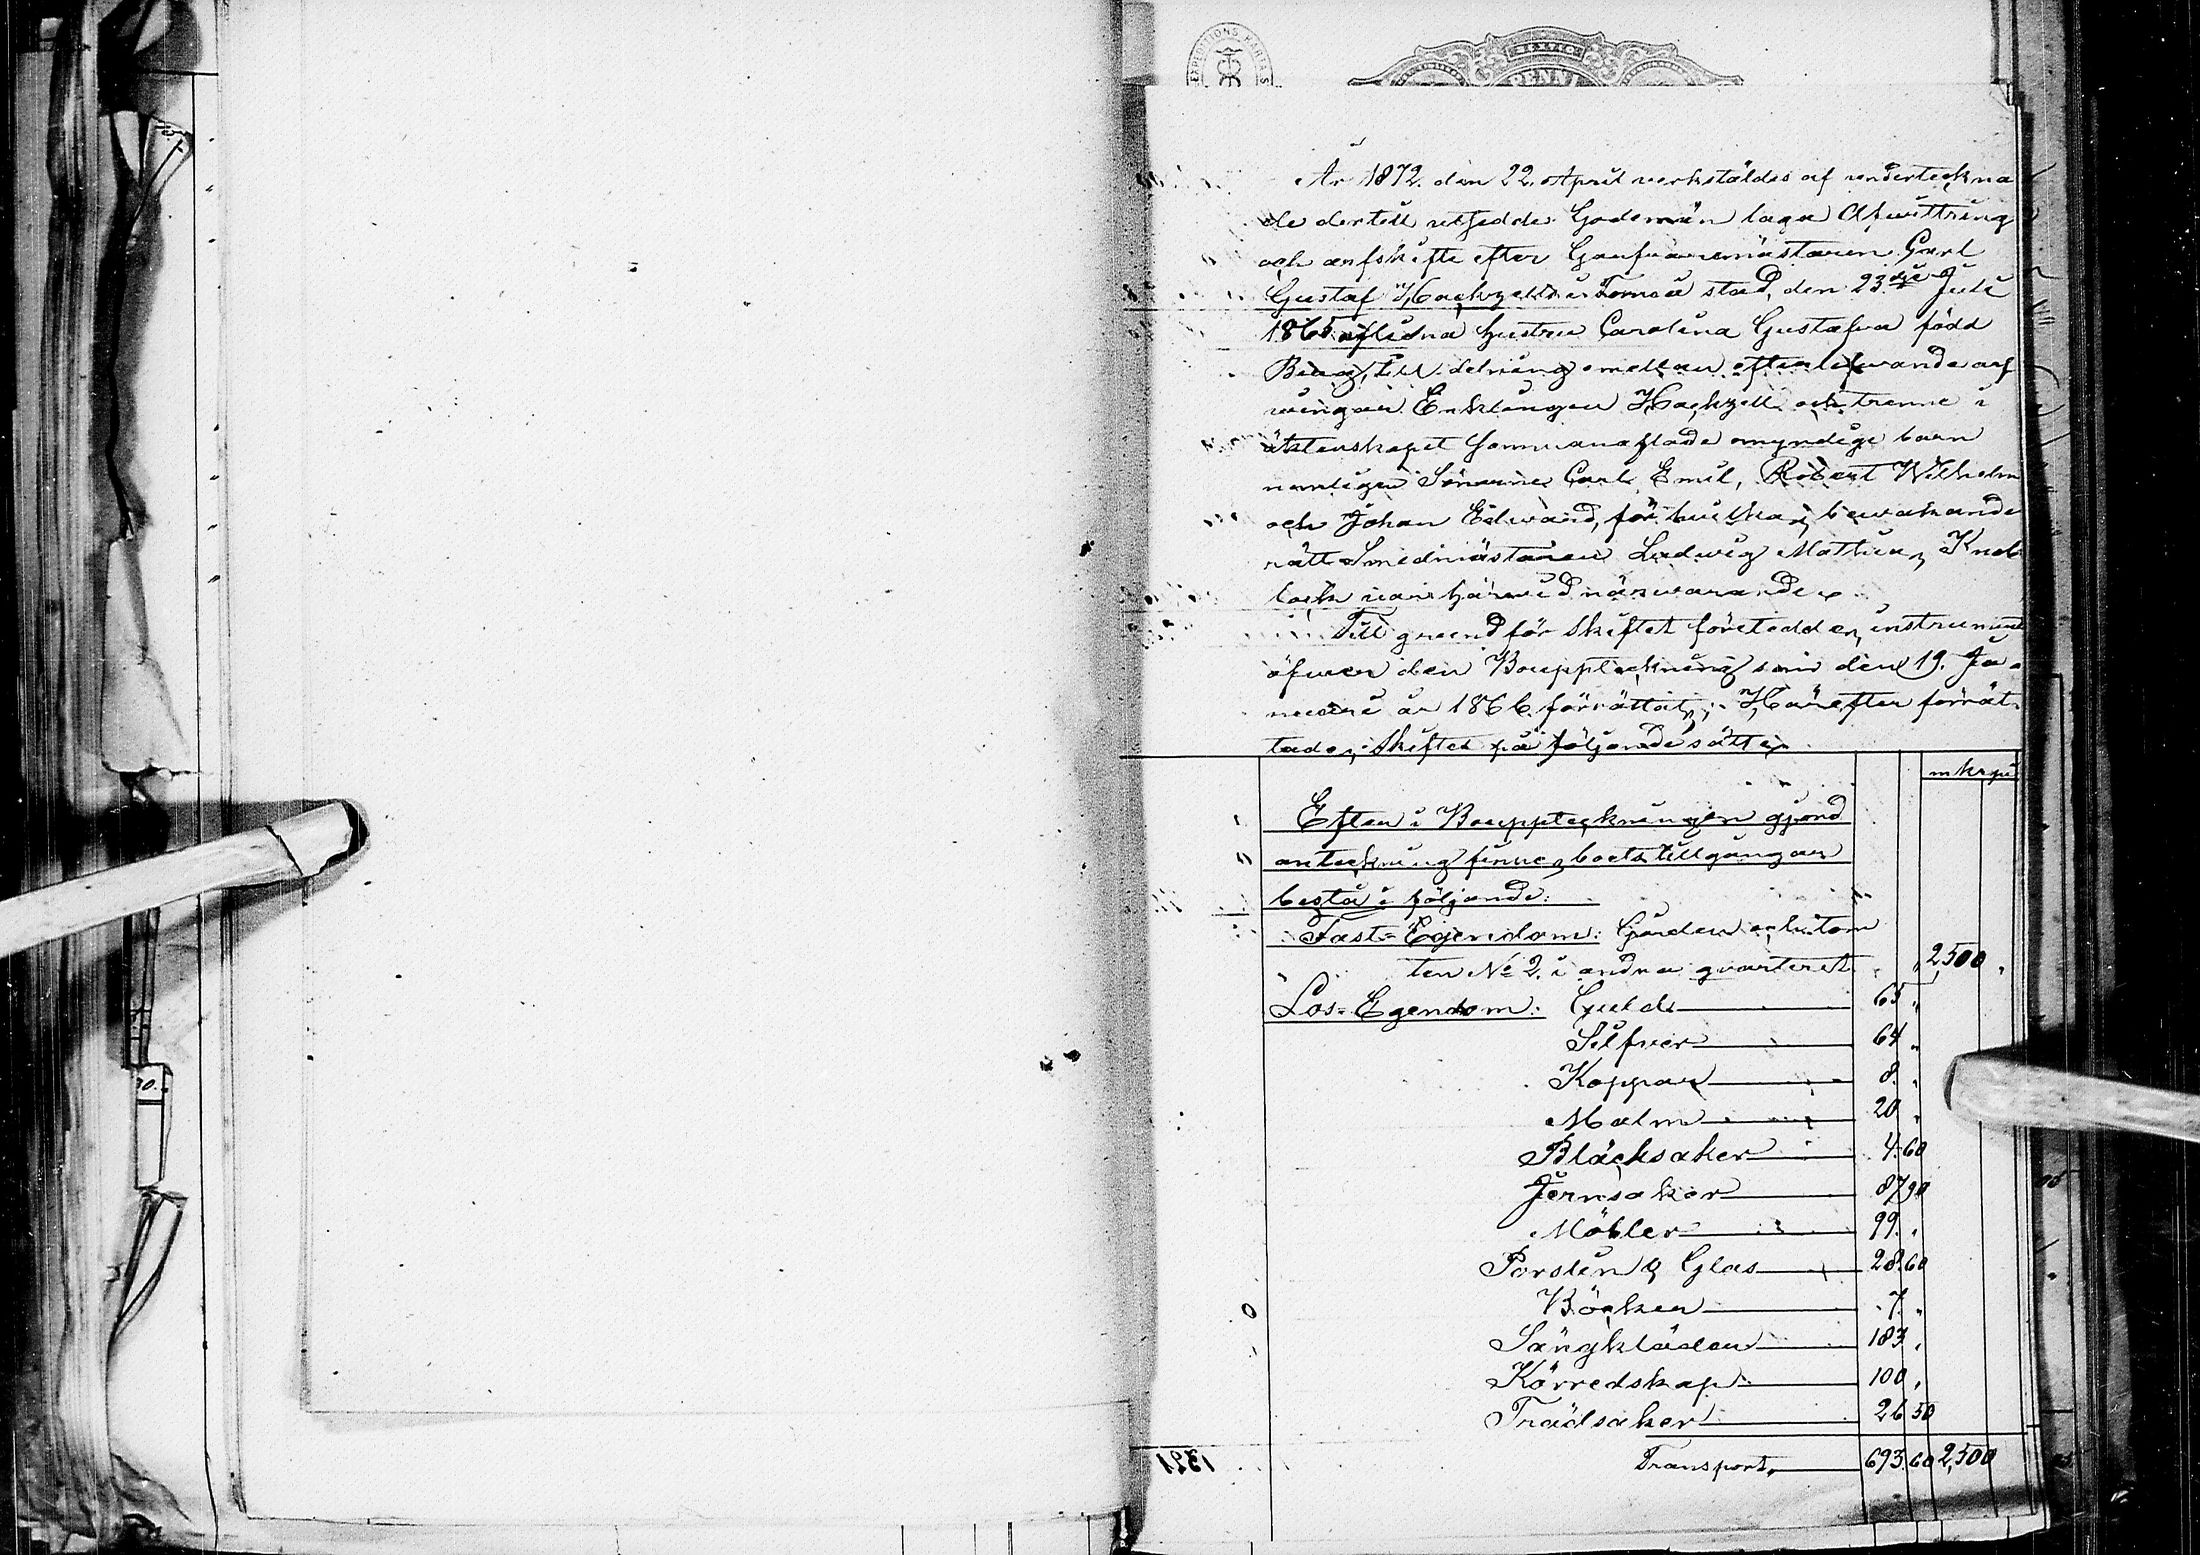 EXPEDITIONS KARTA S
SEXTIO
PENNI
År 1872. den 22. April verkstäldes af underteckna
de dertill utsedde Godemän laga Afwittring
och arfskifte efter Garfvaremästaren Carl
Gustaf Hackzells i Torneå stad, den 23dje Juli
1865 aflidna hustru Carolina Gustafva född
Berg, till delning emellan efterlefwande arf
wingar Enklingen Hackzell och trenne i
äktenskapet sammanaflade omyndige barn
nemligen Sönerne Carl Emil, Robert Wilhelm
och Johan Edward, för hvilkas bewakande
rätt Smedmästaren Ludwig Mattias Knob
lock war härwid närwarande.
Till grund för Skiftet företeddes instrument
öfwer den Bouppteckning som den 19. Ja-
nuari år 1866. förrättats; Härefter förrät-
tades Skiftet på följande sätt
mkr pi
Efter i Bouppteckningen gjord
anteckning finnes boets tillgångar
bestå i följande:
Fast-Egendom: Gården och tom
ten No 2. i andra qvarteret 2,500
Lös-Egendom: Guld 65 "
Silfver 64 "
Koppar 8. "
Malm 20 "
Bläcksaker 4.60
Jernsaker 87,90
Möbler 99. "
Porslin & Glas 28.60
Böcker 7. "
Sängkläder 183 "
Körredskap 100 "
Trädsaker 26 50
Transport 693.60 2,500